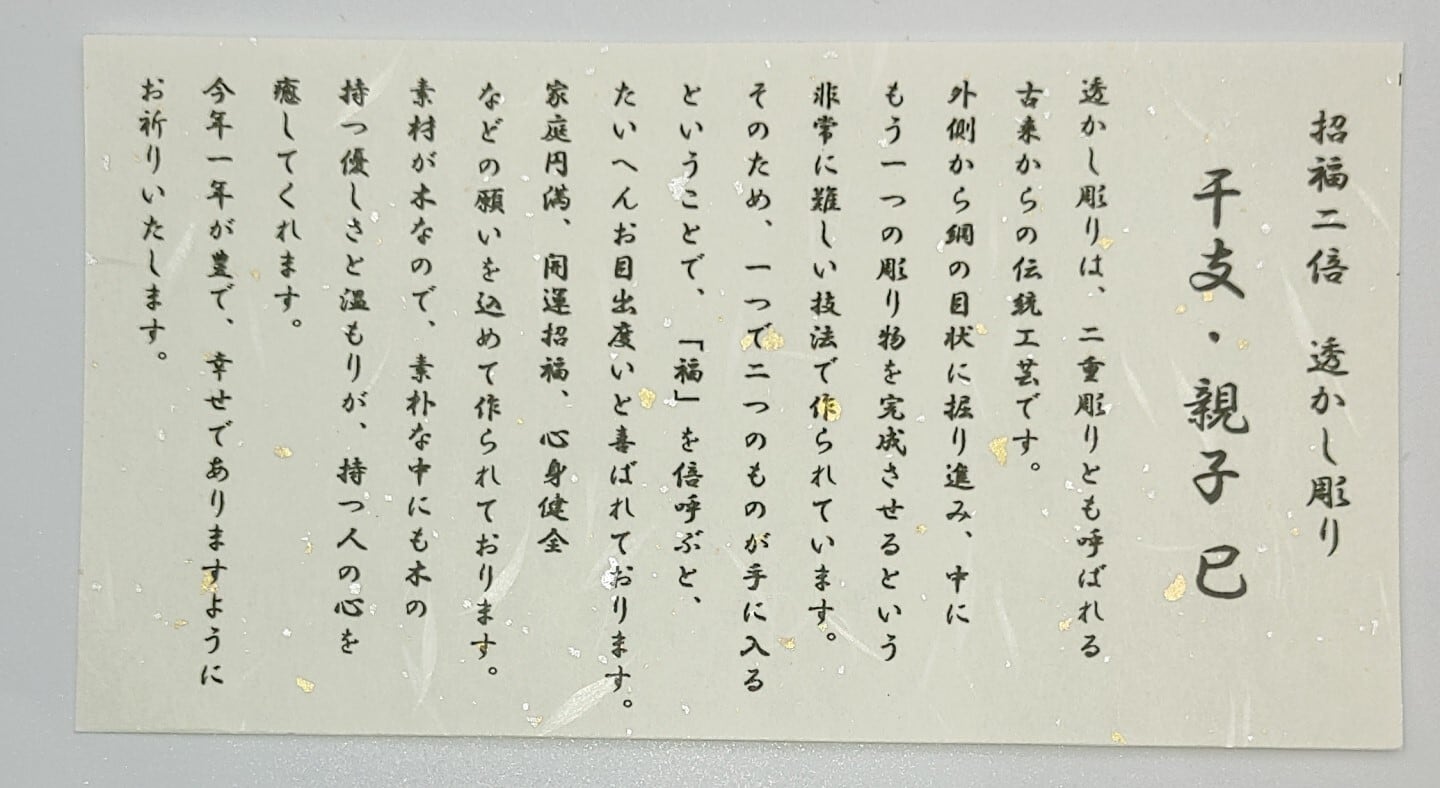 招福二倍　透かし彫り
干支・親子 巳
透かし彫りは、二重彫りとも呼ばれる
古来からの伝統工芸です。
外側から網の目状に掘り進み、中に
もう一つの彫り物を完成させるという
非常に難しい技法で作られています。
そのため、一つで二つのものが手に入る
ということで、「福」を倍呼ぶと、
たいへんお目出度いと喜ばれております。
家庭円満、開運招福、心身健全
などの願いを込めて作られております。
素材が木なので、素朴な中にも木の
持つ優しさと温もりが、持つ人の心を
癒してくれます。
今年一年が豊で、幸せでありますように
お祈りいたします。